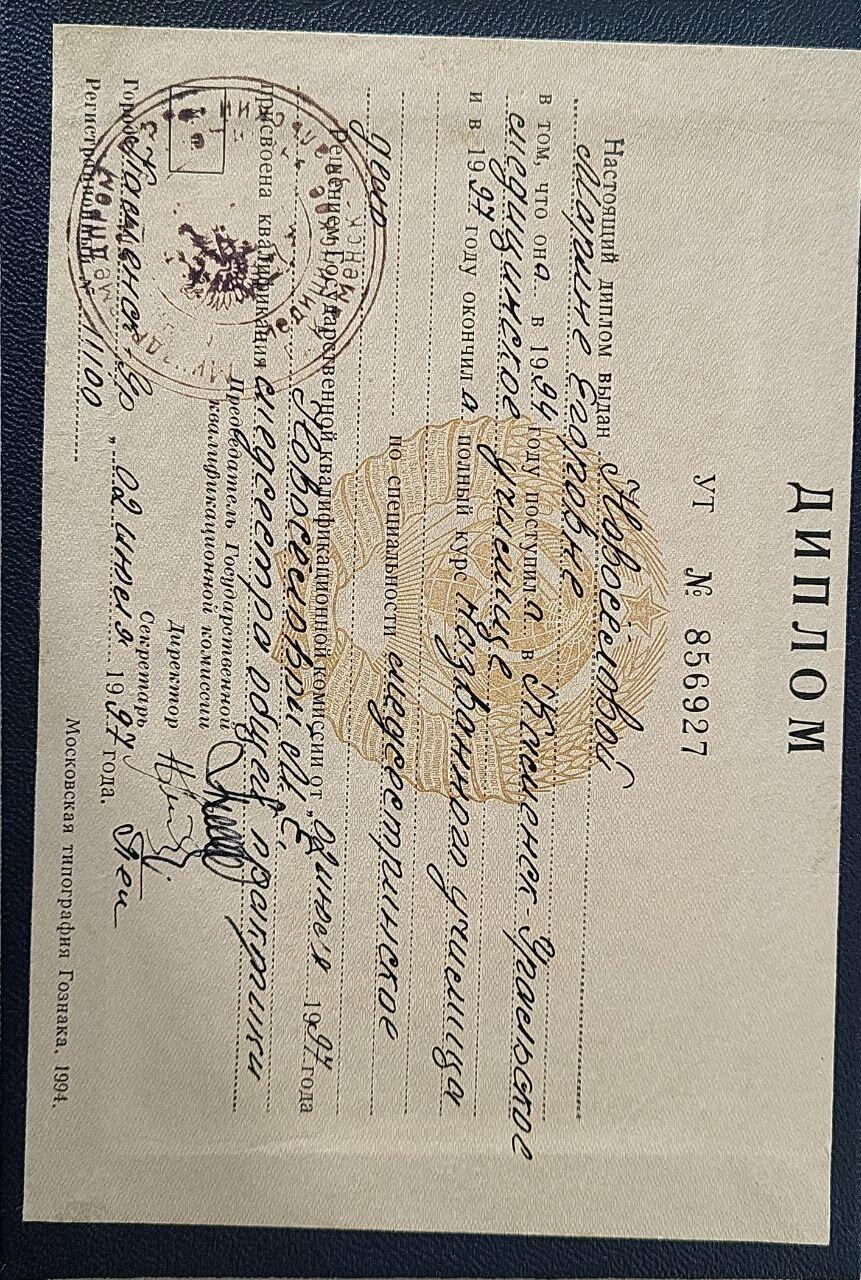 ДИПЛОМ
УТ № 856927
Настоящий диплом выдан Новоселовой
Марине Егоровне
в том, что она в 1994 году поступила в Каменск-Уральское
медицинское училище
и в 1997 году окончила полный курс названного училища
по специальности медсестринское
дело
Решением Государственной квалификационной комиссии от „02 июля 1997 года
Новоселовой М. Е.
присвоена квалификация медсестра общей практики
Председатель Государственной
квалификационной комиссии
Директор
Секретарь
Город Каменск-Ур „ 02 июля 1997 года.
Регистрационный № 1100
Московская типография Гознака. 1994.